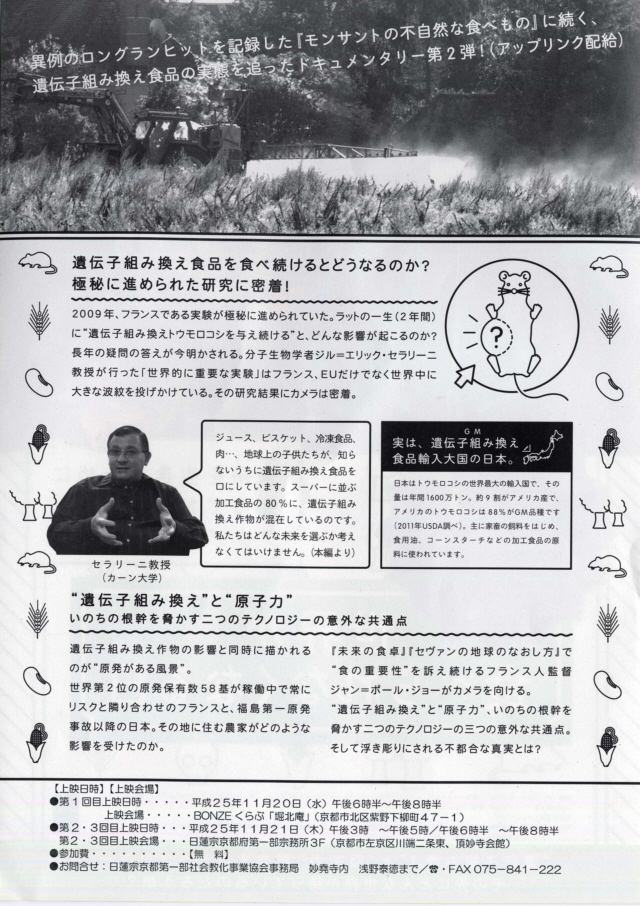 異例のロングランヒットを記録した『モンサントの不自然な食べもの』に続く、
遺伝子組み換え食品の実態を追ったドキュメンタリー第2弾!(アップリンク配給)
遺伝子組み換え食品を食べ続けるとどうなるのか?
極秘に進められた研究に密着!
2009年、フランスである実験が極秘に進められていた。ラットの一生(2年間)
に“遺伝子組み換えトウモロコシを与え続ける”と、どんな影響が起こるのか?
長年の疑問の答えが今明かされる。分子生物学者ジル=エリック・セラリーニ
教授が行った「世界的に重要な実験」はフランス、EUだけでなく世界中に
大きな波紋を投げかけている。その研究結果にカメラは密着。
?
ジュース、ビスケット、冷凍食品、
肉…、地球上の子供たちが、知ら
ないうちに遺伝子組み換え食品を
口にしています。スーパーに並ぶ
加工食品の80%に、遺伝子組み
換え作物が混在しているのです。
私たちはどんな未来を選ぶか考え
なくてはいけません。(本編より)
セラリーニ教授
(カーン大学)
GM
実は、遺伝子組み換え
食品輸入大国の日本。
日本はトウモロコシの世界最大の輸入国で、その
量は年間1600万トン。約9割がアメリカ産で、
アメリカのトウモロコシは88%がGM品種です
(2011年USDA調べ)。主に家畜の飼料をはじめ、
食用油、コーンスターチなどの加工食品の原
料に使われています。
“遺伝子組み換え”と“原子力”
いのちの根幹を脅かす二つのテクノロジーの意外な共通点
遺伝子組み換え作物の影響と同時に描かれる
のが“原発がある風景”。
世界第2位の原発保有数58基が稼働中で常に
リスクと隣り合わせのフランスと、福島第一原発
事故以降の日本。その地に住む農家がどのような
影響を受けたのか。
『未来の食卓』『セヴァンの地球のなおし方』で
“食の重要性”を訴え続けるフランス人監督
ジャン=ポール・ジョーがカメラを向ける。
“遺伝子組み換え”と“原子力”、いのちの根幹を
脅かす二つのテクノロジーの三つの意外な共通点。
そして浮き彫りにされる不都合な真実とは?
【上映日時】【上映会場】
●第1回目上映日時・・・・・平成25年11月20日(水)午後6時半~午後8時半
上映会場・・・・・BONZEくらぶ「堀北庵」(京都市北区紫野下柳町47-1)
●第2・3回目上映日時・・・平成25年11月21日(木)午後3時 ~午後5時/午後6時半 ~午後8時半
第2・3回目上映会場・・・日蓮宗京都府第一部宗務所3F(京都市左京区川端二条東、頂妙寺会館)
●参加費・・・・・・・・・・【無 料】
●お問合せ:日蓮宗京都第一部社会教化事業協会事務局 妙堯寺内 浅野泰徳まで/☎・FAX 075-841-222